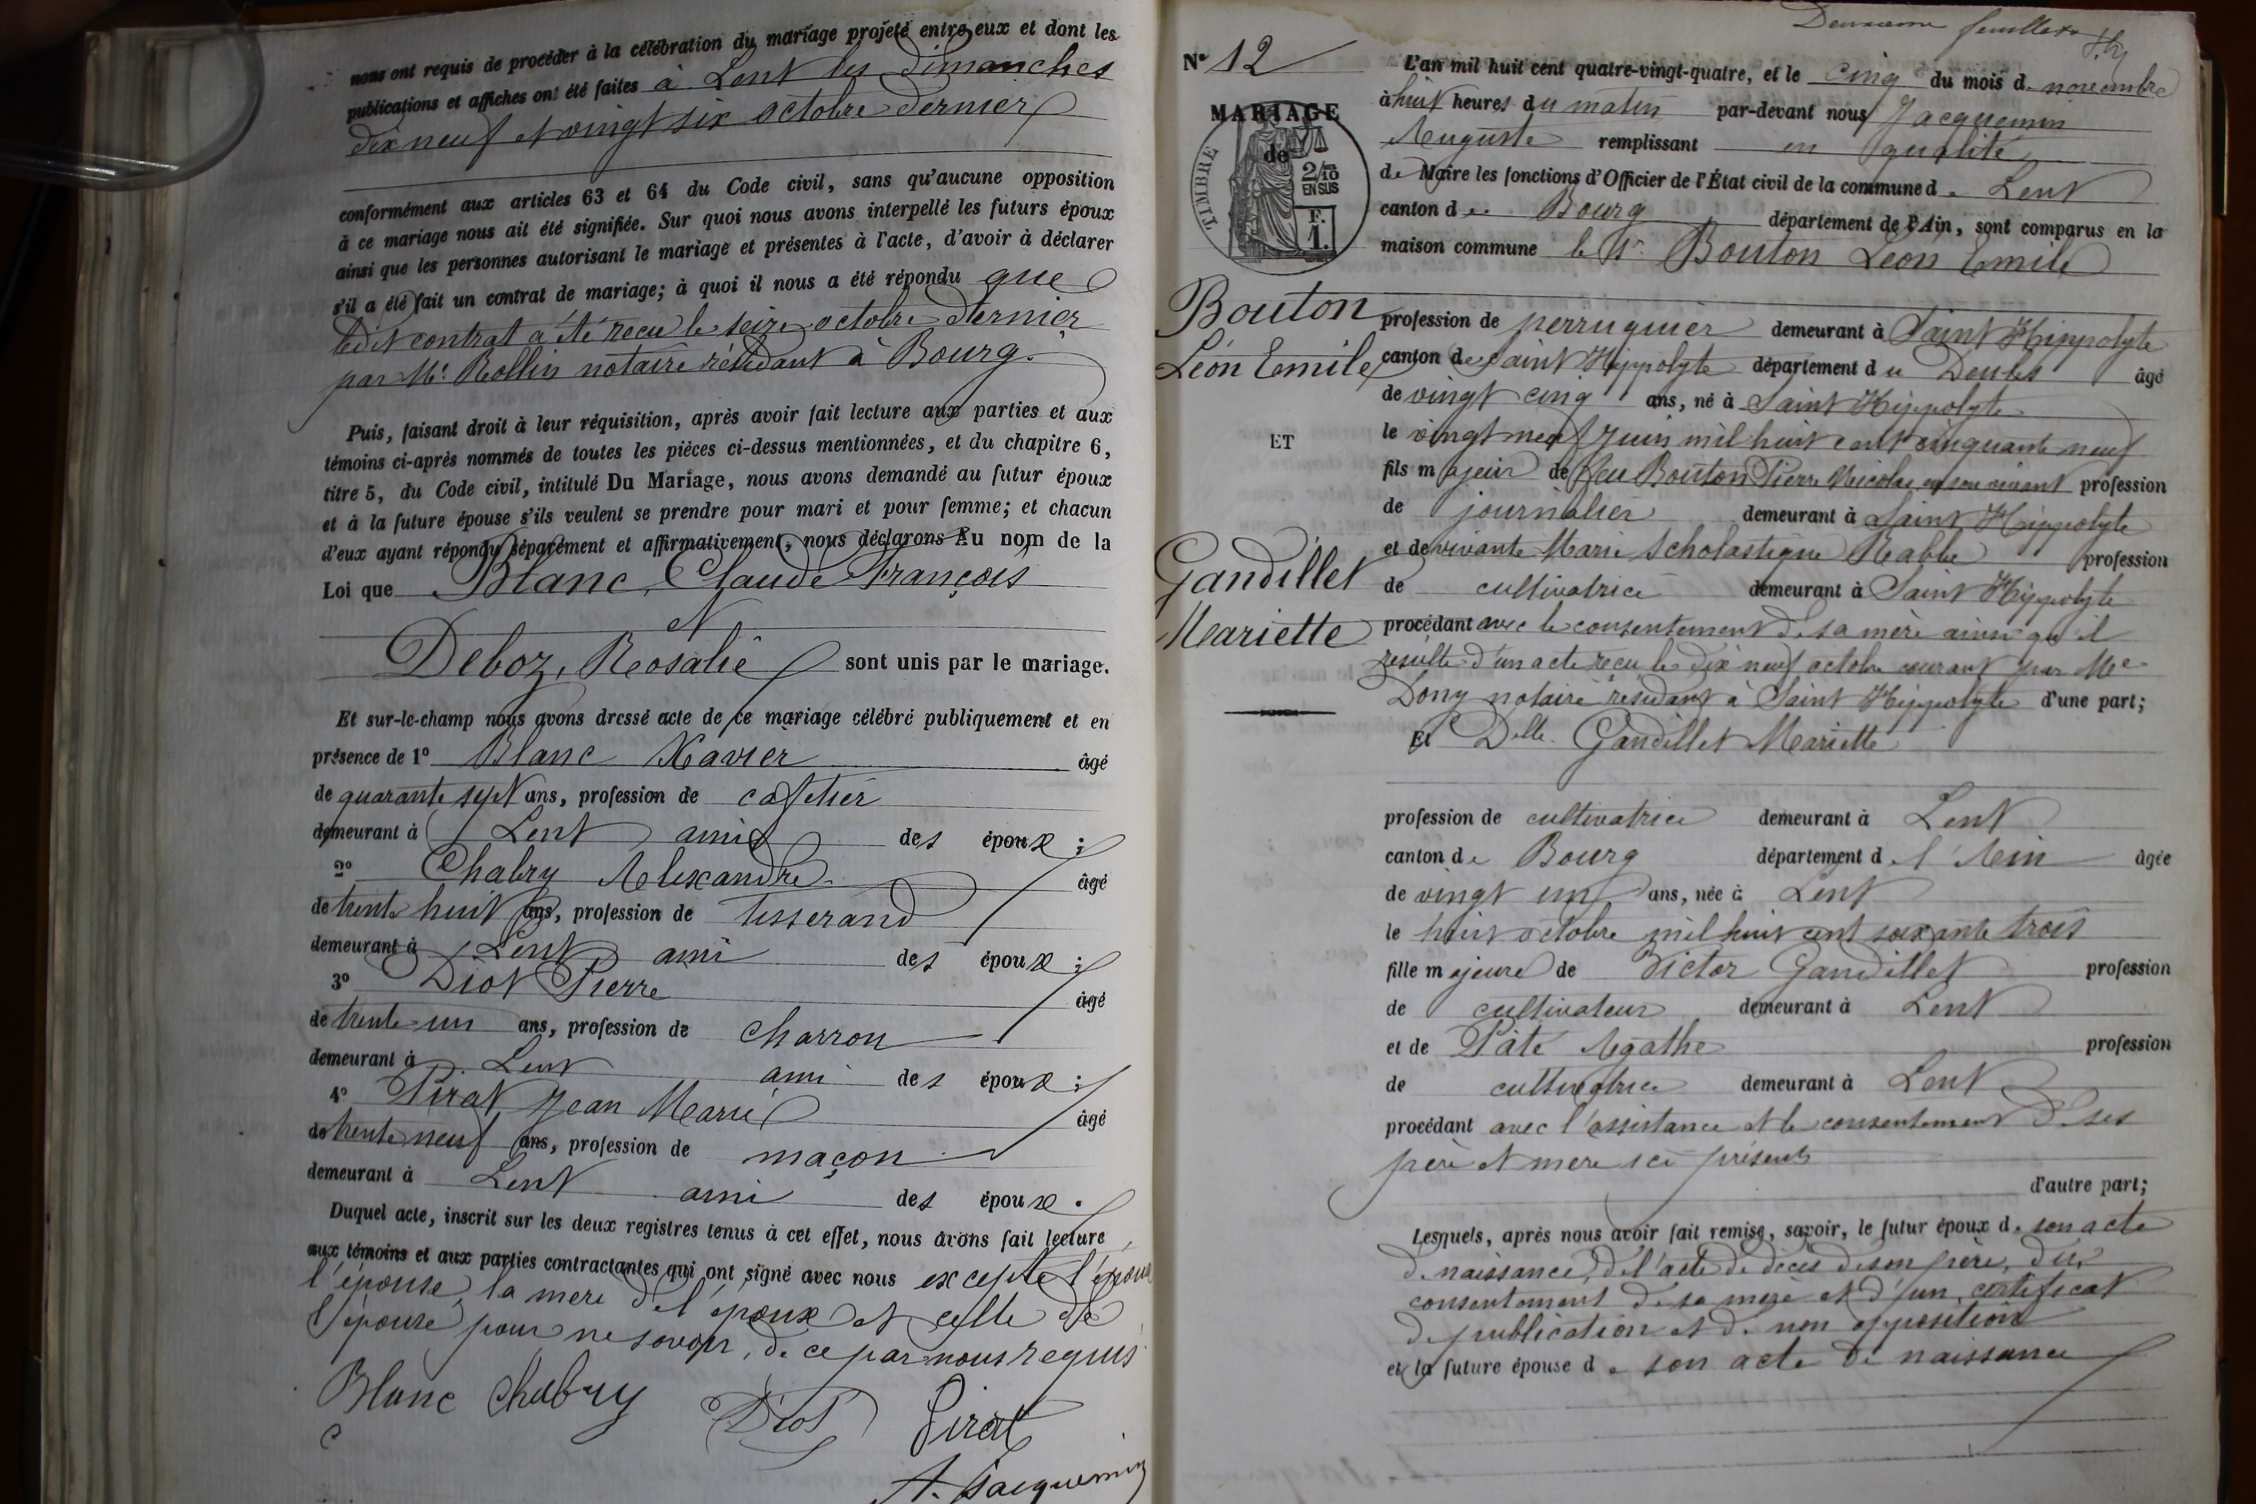 nous ont requis de procéder à la célébration du mariage projeté entre eux et dont les
publications et affiches ont été faites à Lent les dimanches
dix neuf et vingt six octobre dernier
conformément aux articles 63 et 64 du Code civil, sans qu'aucune opposition
à ce mariage nous ait été signifiée. Sur quoi nous avons interpellé les futurs époux
ainsi que les personnes autorisant le mariage et présentes à l'acte, d'avoir à déclarer
s'il a été fait un contrat de mariage; à quoi il nous a été répondu que
ledit contrat a été reçu le seize octobre dernier
par Me Rollin notaire résidant à Bourg.
Puis, faisant droit à leur réquisition, après avoir fait lecture aux parties et aux
témoins ci-après nommés de toutes les pièces ci-dessus mentionnées, et du chapitre 6,
titre 5, du Code civil, intitulé Du Mariage, nous avons demandé au futur époux
et à la future épouse s'ils veulent se prendre pour mari et pour femme; et chacun
d'eux ayant répondu séparément et affirmativement, nous déclarons Au nom de la
Loi que Blanc, Claude François
et
Deboz, Rosalie sont unis par le mariage.
Et sur-le-champ nous avons dressé acte de ce mariage célébré publiquement et en
présence de 1° Blanc Xavier âgé
de quarante sept ans, profession de cafetier
demeurant à Lent ami des époux ;
2° Chabry Alexandre âgé
de trente huit ans, profession de tisserand
demeurant à Lent ami des époux ;
3° Diot Pierre âgé
de trente un ans, profession de charron
demeurant à Lent ami des époux ;
4° Pirat Jean Marie âgé
de trente neuf ans, profession de maçon
demeurant à Lent ami des époux .
Duquel acte, inscrit sur les deux registres tenus à cet effet, nous avons fait lecture
aux témoins et aux parties contractantes qui ont signé avec nous excepté l'époux
l'épouse, la mère de l'époux et celle de
l'épouse pour ne savoir, de ce par nous requis
Blanc Chabry Diot Pirat
A. Jacquemin
Deuxième feuillet
N° 12
MARIAGE
de
TIMBRE
2/10
EN SUS
F.
1.
Bouton
Léon Emile
ET
Gandillet
Mariette
L'an mil huit cent quatre-vingt-quatre, et le cinq du mois de novembre
à huit heures du matin par-devant nous Jacquemin
Auguste remplissant en qualité
de Maire les fonctions d'Officier de l'État civil de la commune de Lent
canton de Bourg département de l'Ain, sont comparus en la
maison commune le Sr Bouton Léon Emile
profession de perruquier demeurant à Saint Hippolyte
canton de Saint Hippolyte département du Doubs âgé
de vingt cinq ans, né à Saint Hippolyte
le vingt neuf juin mil huit cent cinquante neuf
fils majeur de feu Bouton Pierre Nicolas en son vivant profession
de journalier demeurant à Saint Hippolyte
et de vivante Marie Scholastique Rabbe profession
de cultivatrice demeurant à Saint Hippolyte
procédant avec le consentement de sa mère ainsi qu'il
résulte d'un acte reçu le dix neuf octobre courant par Me
Dony notaire résidant à Saint Hippolyte d'une part;
Et Delle Gandillet Mariette
profession de cultivatrice demeurant à Lent
canton de Bourg département de l'Ain âgée
de vingt un ans, née à Lent
le huit octobre mil huit cent soixante trois
fille majeure de Victor Gandillet profession
de cultivateur demeurant à Lent
et de Pâté Agathe profession
de cultivatrice demeurant à Lent
procédant avec l'assistance et le consentement de ses
père et mère ici présents
d'autre part;
Lesquels, après nous avoir fait remise, savoir, le futur époux de son acte
de naissance, de l'acte de décès de son père, du
consentement de sa mère et d'un certificat
de publication et de non opposition
et la future épouse de son acte de naissance